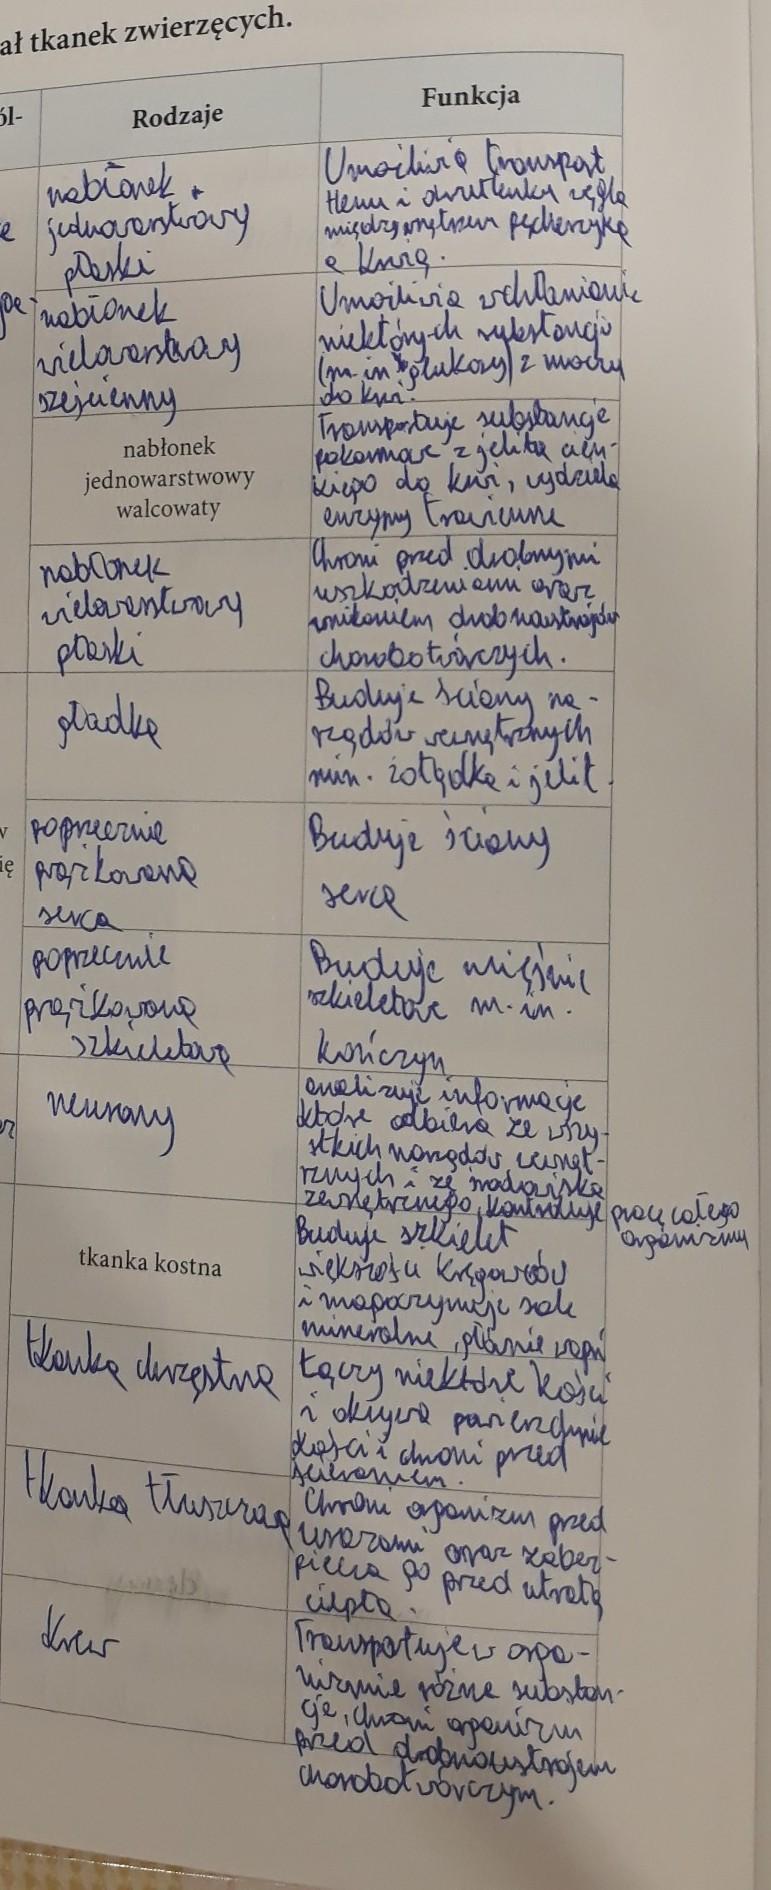 ał tkanek zwierzęcych.
ól-
Rodzaje
Funkcja
nabłonek
jednowarstwowy
płaski
Umożliwia transport
tlenu i dwutlenku węgla
między wnętrzem pęcherzyka
a krwią.
nabłonek
wielowarstwowy
sześcienny
Umożliwia wchłanianie
niektórych substancji
(m.in glukozy) z moczu
do krwi.
nabłonek
jednowarstwowy
walcowaty
Transportuje substancje
pokarmowe z jelita cien-
kiego do krwi, wydziela
enzymy trawienne
nabłonek
wielowarstwowy
płaski
Chroni przed drobnymi
uszkodzeniami oraz
wnikaniem drobnoustrojów
chorobotwórczych.
gładka
Buduje ściany na-
rządów wewnętrznych
min. żołądka i jelit.
poprzecznie
prążkowana
serca
Buduje ściany
serca
poprzecznie
prążkowana
szkieletowa
Buduje mięśnie
szkieletowe m.in.
kończyn
neurony
analizuje informacje
które odbiera ze wszy-
stkich narządów wewnęt-
rznych i ze środowiska
zewnętrznego, kontroluje pracę całego
organizmu
tkanka kostna
Buduje szkielet
większości kręgowców
i magazynuje sole
mineralne, głównie wapń
tkanka chrzęstna
Łączy niektóre kości
i okrywa powierzchnie
kości i chroni przed
ścieraniem.
tkanka tłuszczowa
Chroni organizm przed
urazami oraz zabez-
piecza go przed utratą
ciepła.
krew
Transportuje w orga-
nizmie różne substan-
cje, chroni organizm
przed drobnoustrojem
chorobotwórczym.